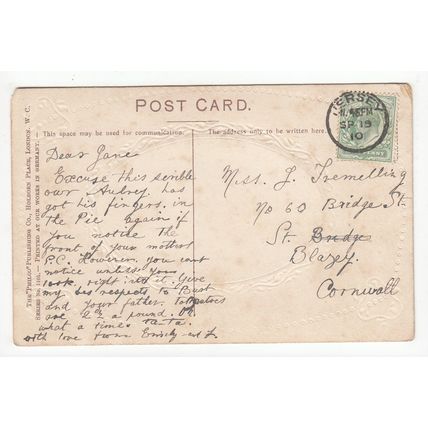 POST CARD.
This space may be used for communication.
The address only to be written here.
THE "PHILCO" PUBLISHING CO., HOLBORN PLACE, LONDON, W. C.
PRINTED AT OUR WORKS IN GERMANY.
JERSEY
SP 19
10
Dear Jane
Excuse this scribble
Aubrey has
got his fingers in
the Pie again if
you notice the
front of your mothers
P.C. However you cant
notice unless you
look right into it. Give
my respects to
and your father.
a pound. Oh
what a time. ta-ta.
with love from
Miss J Tremelling
No 60 Bridge St
St. Bridge
Blazey
Cornwall